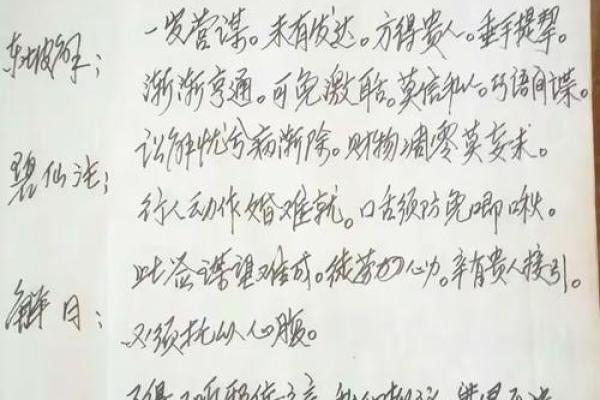 东坡解：一发营谋。未有发达。方得贵人。垂手提挈。
渐渐亨通。可免激聒。莫信私人。巧语间谍。
碧仙注：讼解忧兮病渐除。财物凋零莫妄求。
行人动作婚难就。口舌须防免唧啾。
解曰：此签谋望难成。徒劳心力。幸有贵人接引。
又须托以心腹。